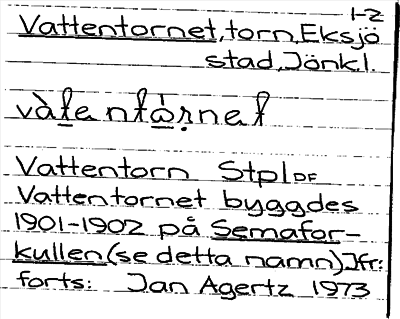 1-2
Vattentornet, torn, Eksjö
stad, Jönk.l.
Vattentorn Stpl DF
Vattentornet byggdes
1901-1902 på Semafor-
kullen (se detta namn) Jfr:
forts: Jan Agertz 1973